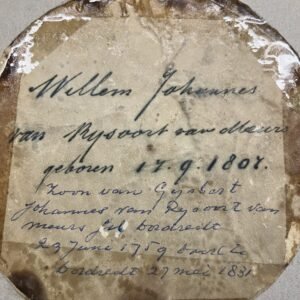 Willem Johannes
van Rysoort van Meurs
geboren 17.9.1807.
Zoon van Gysbert
Johannes van Rysoort van
meurs Dordrecht
23 June 1759
Dordrecht 27 mei 1831